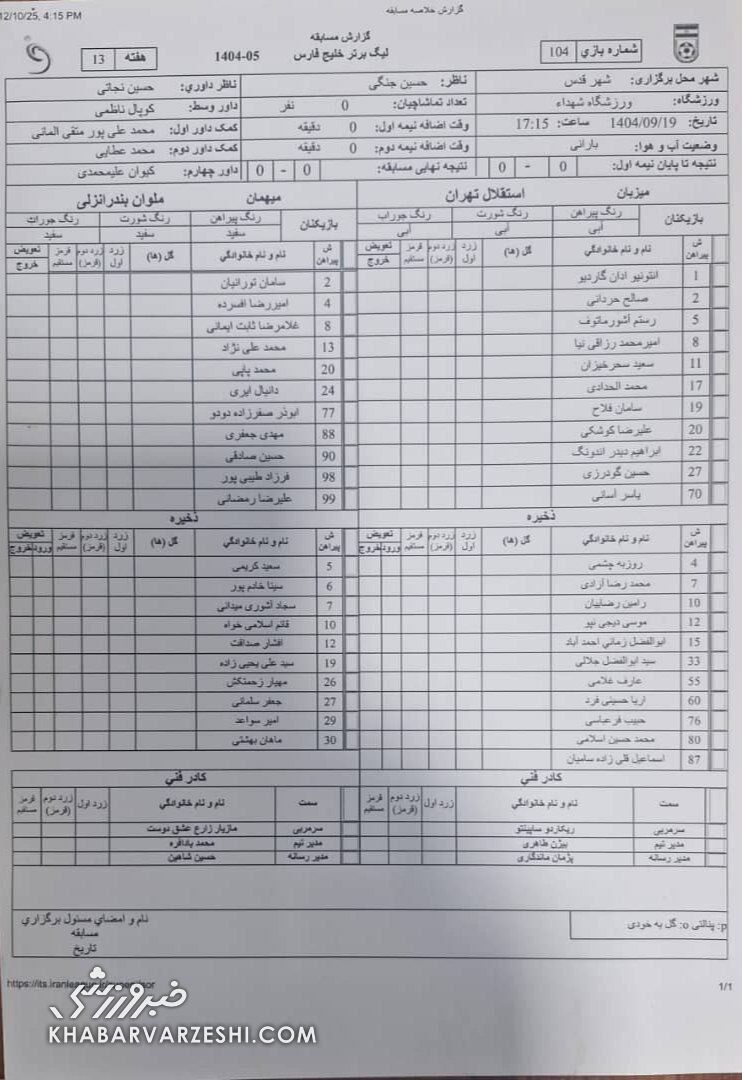 12/10/25, 4:15 PM
گزارش خلاصه مسابقه
گزارش مسابقه
شماره بازي 104
ليگ برتر خليج فارس 1404-05
هفته 13
شهر محل برگزاری: شهر قدس
ناظر: حسین جنگی
ناظر داوري: حسین نجاتی
ورزشگاه: ورزشگاه شهداء
تعداد تماشاچیان: 0 نفر
داور وسط: کوپال ناظمی
تاریخ: 1404/09/19 ساعت: 17:15
وقت اضافه نیمه اول: 0 دقیقه
کمک داور اول: محمد علی پور متقی المانی
وضعیت آب و هوا: بارانی
وقت اضافه نیمه دوم: 0 دقیقه
کمک داور دوم: محمد عطایی
نتیجه تا پایان نیمه اول: 0 - 0
نتیجه نهایی مسابقه: 0 - 0
داور چهارم: کیوان علیمحمدی
میزبان استقلال تهران
بازیکنان
رنگ پیراهن رنگ شورت رنگ جوراب
آبی آبی آبی
ش پیراهن نام و نام خانوادگي گل (ها) زرد اول زرد دوم (قرمز) قرمز مستقیم تعویض خروج
1 انتونیو ادان گاردیو
2 صالح حردانی
5 رستم آشورماتوف
8 امیرمحمد رزاقی نیا
11 سعید سحرخیزان
17 محمد الحدادی
19 سامان فلاح
20 علیرضا کوشکی
22 ابراهیم دیدر اندونگ
27 حسین گودرزی
70 یاسر آسانی
ذخیره
ش پیراهن نام و نام خانوادگي گل (ها) زرد اول زرد دوم (قرمز) قرمز مستقیم تعویض ورود خروج
4 روزبه چشمی
7 محمد رضا آزادی
10 رامین رضاییان
12 موسی دیجی نپو
15 ابوالفضل زمانی احمد آباد
33 سید ابوالفضل جلالی
55 عارف غلامی
60 اریا حسینی فرد
76 حبیب فرعباسی
80 محمد حسین اسلامی
87 اسماعیل قلی زاده سامیان
کادر فني
سمت نام و نام خانوادگي زرد اول زرد دوم (قرمز) قرمز مستقیم
سرمربی ریکاردو ساپینتو
مدیر تیم بیژن طاهری
مدیر رسانه پژمان ماندگاری
میهمان ملوان بندرانزلی
بازیکنان
رنگ پیراهن رنگ شورت رنگ جوراب
سفید سفید سفید
ش پیراهن نام و نام خانوادگي گل (ها) زرد اول زرد دوم (قرمز) قرمز مستقیم تعویض خروج
2 سامان تورانیان
4 امیررضا افسرده
8 غلامرضا ثابت ایمانی
13 محمد علی نژاد
20 محمد پاپی
24 دانیال ایری
77 ابوذر صفرزاده دودو
88 مهدی جعفری
90 حسین صادقی
98 فرزاد طیبی پور
99 علیرضا رمضانی
ذخیره
ش پیراهن نام و نام خانوادگي گل (ها) زرد اول زرد دوم (قرمز) قرمز مستقیم تعویض ورود خروج
5 سعید کریمی
6 سینا خادم پور
7 سجاد آشوری میدانی
10 قائم اسلامی خواه
12 افشار صداقت
19 سید علی یحیی زاده
26 مهیار زحمتکش
27 جعفر سلمانی
29 امیر سواعد
30 ماهان بهشتی
کادر فني
سمت نام و نام خانوادگي زرد اول زرد دوم (قرمز) قرمز مستقیم
سرمربی مازیار زارع عشق دوست
مدیر تیم محمد بادافره
مدیر رسانه حسین شاهین
p: پنالتی o: گل به خودی
نام و امضاي مسئول برگزاري
مسابقه
تاریخ
1/1
خبرورزشی
KHABARVARZESHI.COM